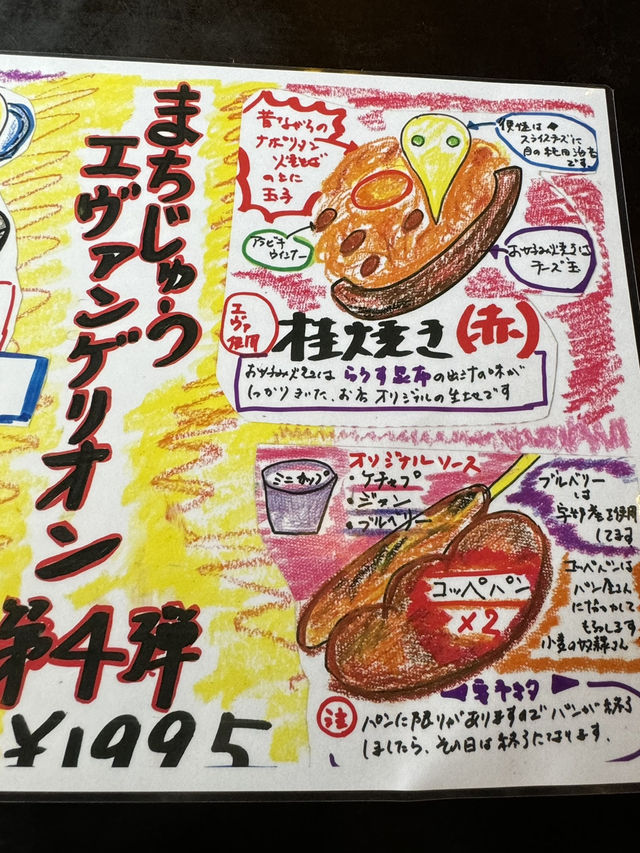 まちじゅう
エヴァンゲリオン
第4弾
¥1995
昔ながらの
ナポリタン
やきそば
のとに
玉子
スライスチーズに
です
アラビキ
ウインナー
お好み焼きは
チーズ玉
エヴァ
使用
桂焼き(赤)
お好み焼きには らうす昆布の出汁の味が
しっかりきいた、お店オリジナルの生地です
ミニカップ
オリジナルソース
・ケチャプ
・ジャン
・ブルベリー
ブルベリー
は
宇部産を使用
してます
コッペパン
×2
コッペパンは
パン屋さん
に協力して
もらいます
小麦の奴隷さん
注
パンに限りがありますのでパンが終了
しましたら、その日は終了になります。